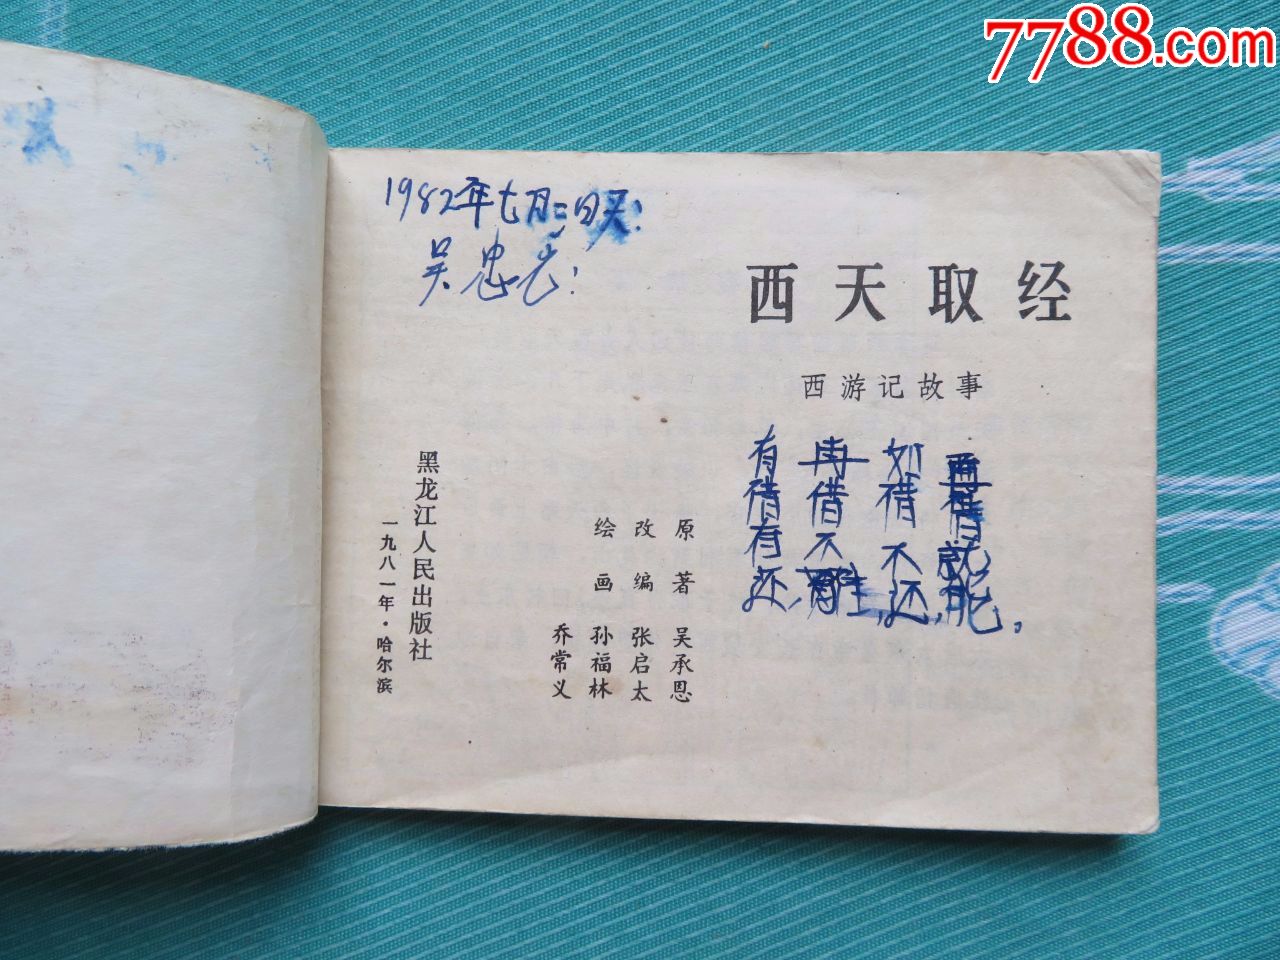 7788.com
1982年七月二日
吴忠
西天取经
西游记故事
有借有还,
再借不难,
如借不还,
再借就能.
原著 吴承恩
改编 张启太
绘画 孙福林
乔常义
黑龙江人民出版社
一九八一年·哈尔滨